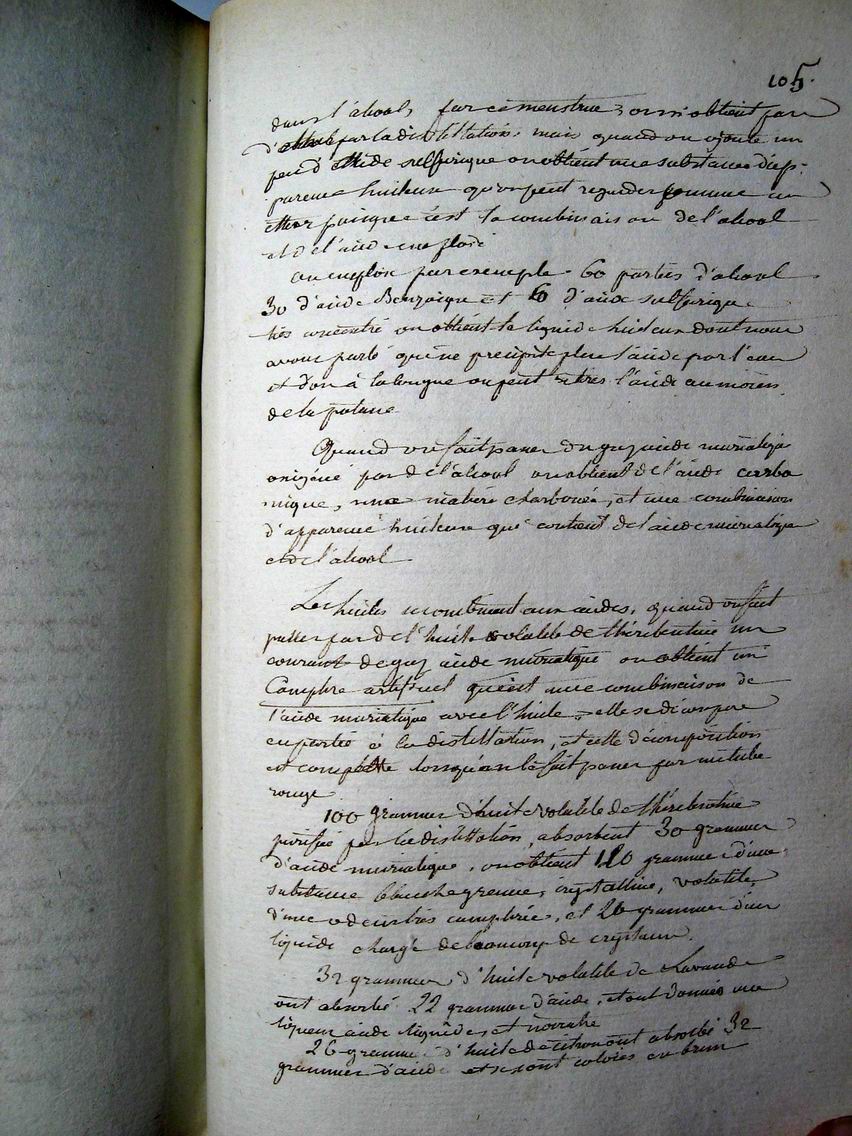 105.
dans l'alcool, par ce menstrue, on n'obtient pas
d'ether par la distillation, mais quand on ajoute un
peu d'acide sulfurique on obtient une substance d'ap-
parence huileuse qu'on peut regarder comme un
ether puisque c'est la combinaison de l'alcool
et de l'acide employé
on employe par exemple 60 parties d'alcool
30 d'acide Benzoique et 6 d'acide sulfurique
très concentré on obtient le liquide huileux dont nous
avons parlé qui ne precipite plus l'acide par l'eau
et d'on à la longue on peut l'acide au moien
de la potasse
Quand on fait passer du gaz acide muriatique
oxigéné par de l'alcool on obtient de l'acide carbo
nique, une matiere charbonée, et une combinaison
d'apparence huileuse qui contient de l'acide muriatique
et de l'alcool
Les huiles se combinent aux acides, quand on fait
passer par de l'huile volatile de théribentine un
courant de gaz acide muriatique on obtient un
Camphre artificiel qui est une combinaison de
l'acide muriatique avec l'huile, elle se décompose
en partie à la distillation, et cette décomposition
est complette lorsqu'on la fait passer par un tube
rouge
100 grammes d'huile volatile de théribentine
purifiée par la distillation, absorbent 30 grammes
d'acide muriatique, on obtient 110 grammes d'une
substance blanche grenue, crystalline, volatile,
d'une odeur très camphrée, et 20 grammes d'un
liquide chargé de beaucoup de crystaux.
32 grammes d'huile volatile de Lavande
ont absorbé 22 grammes d'acide, et ont donné une
liqueur acide liquide et noiratre
26 grammes d'huile de citron ont absorbé 32
grammes d'acide et se sont colorés en brun